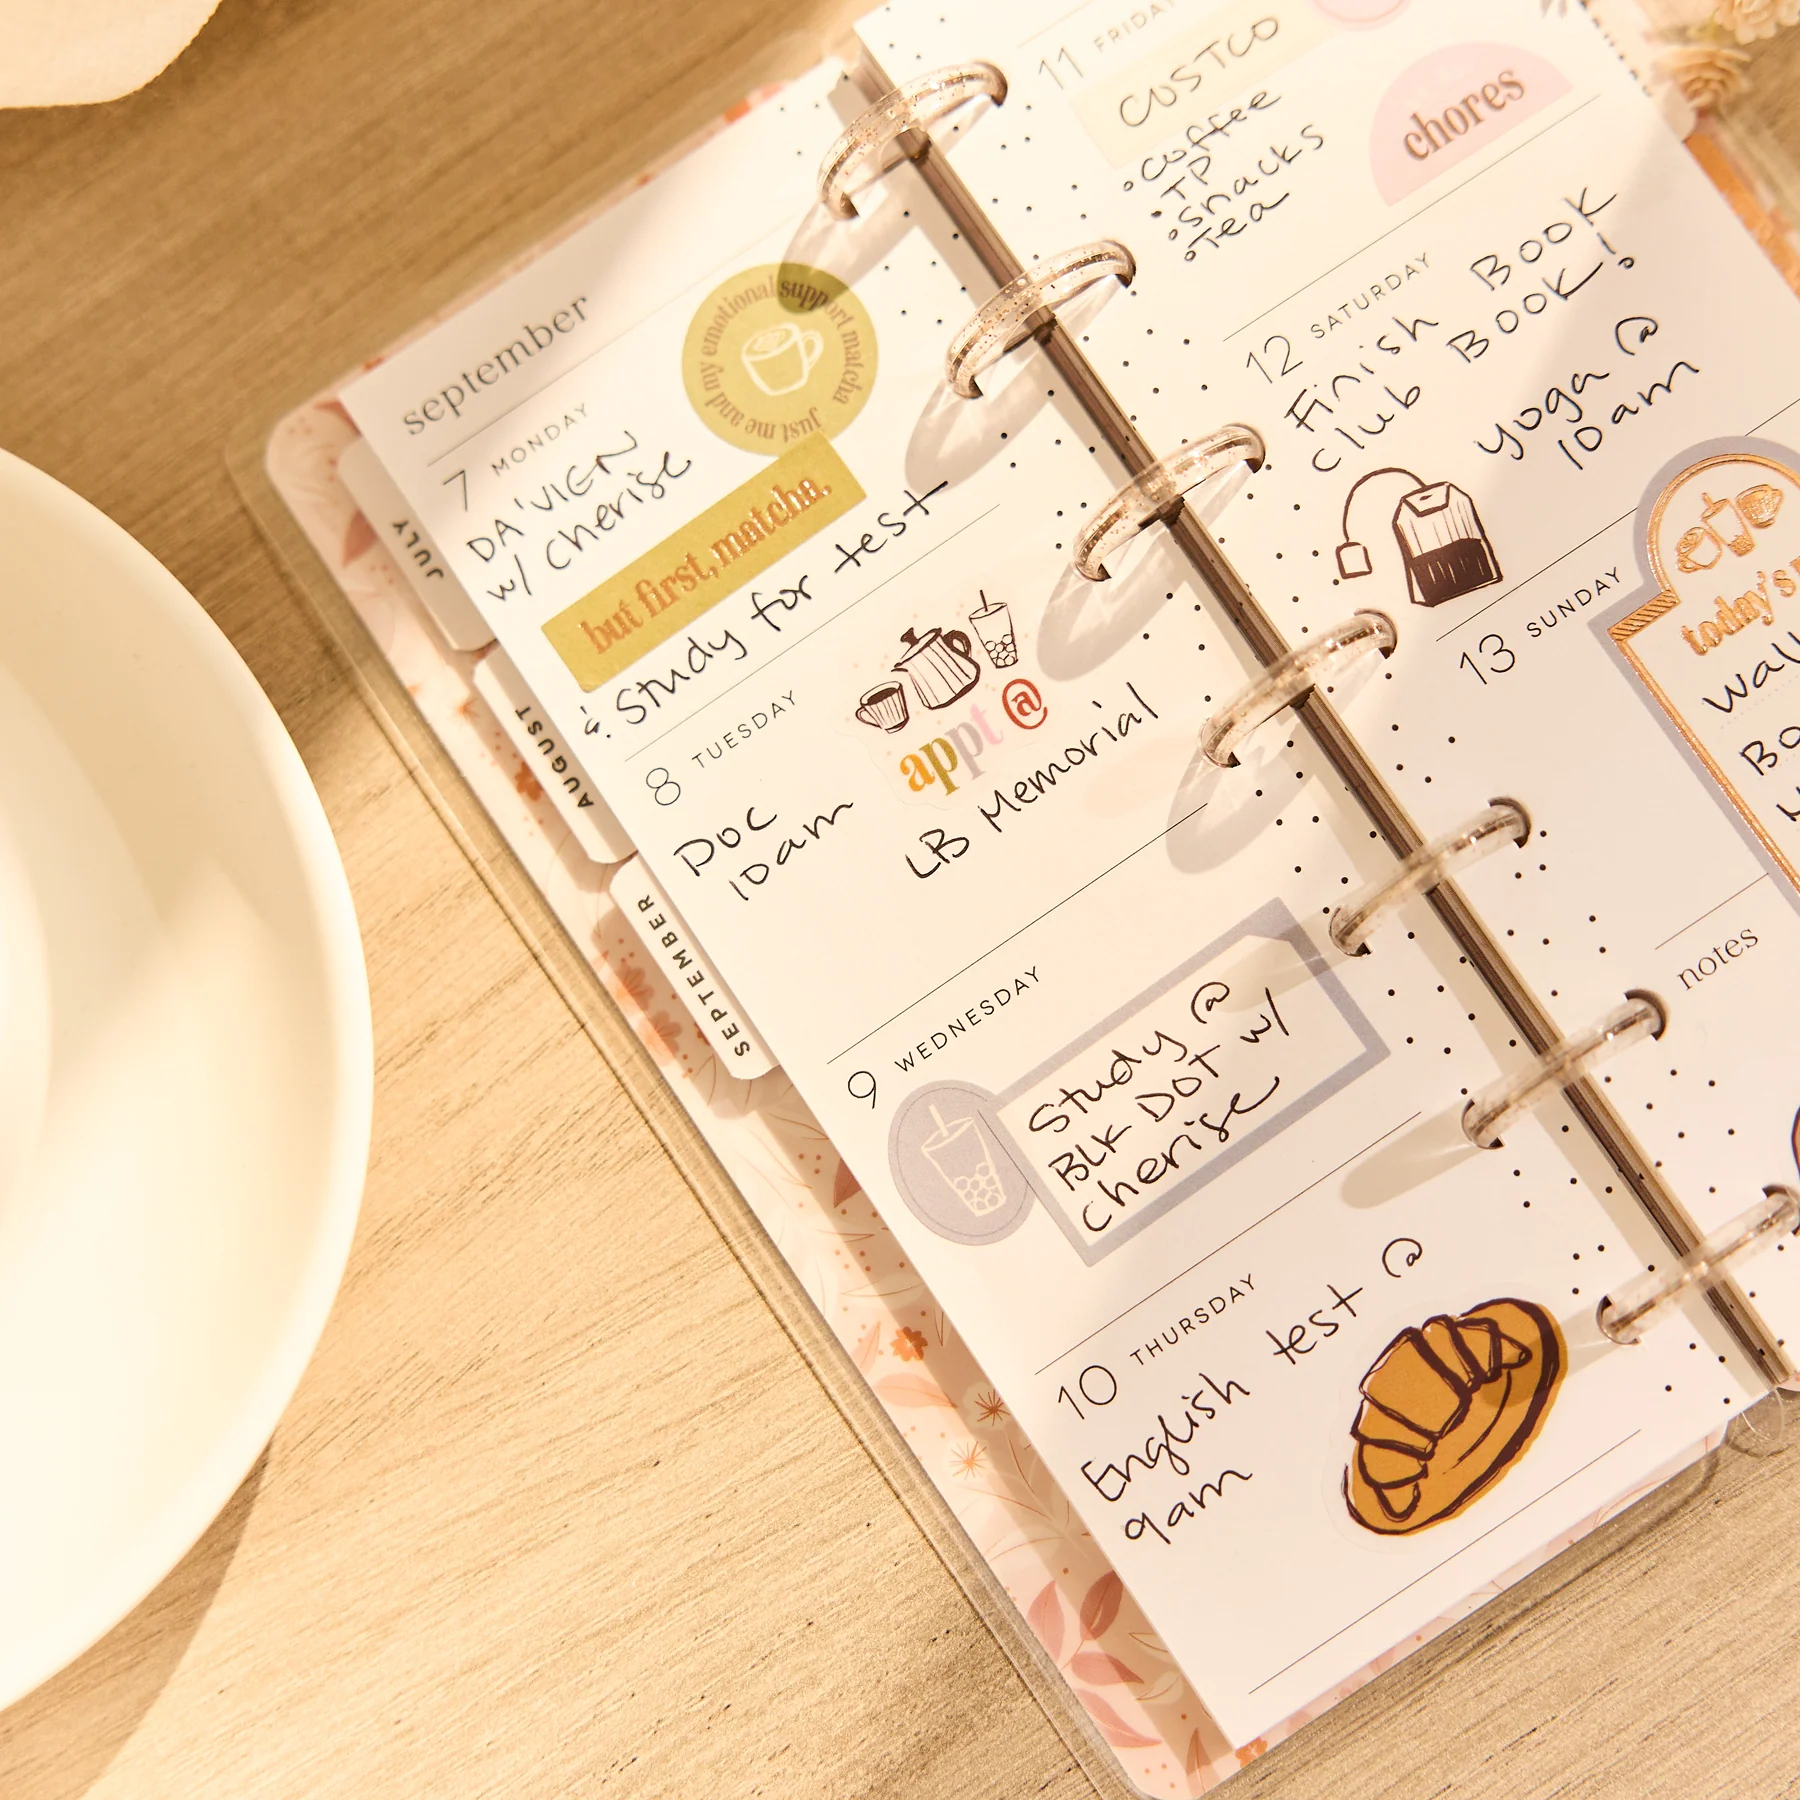 september
just me and my emotional support matcha
7 MONDAY
DA'VIEN
w/ Cherise
but first, matcha.
& Study for test
8 TUESDAY
appt @
Doc
10am
LB Memorial
9 WEDNESDAY
Study @
BLK DOT w/
Cherise
10 THURSDAY
English test @
9am
JULY
AUGUST
SEPTEMBER
11 FRIDAY
COSTCO
chores
•Coffee
•TP
•Snacks
•Tea
12 SATURDAY
Finish BOOK
club BOOK!
yoga @
10am
13 SUNDAY
today's
notes